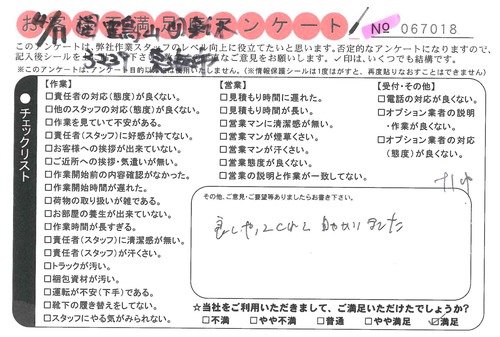 お客様満足度アンケート
№ 067018
このアンケートは、弊社作業スタッフのレベル向上に役立てたいと思います。否定的なアンケートになりますので、
記入後シールを
なご意見をお願いします。✓印は、いくつでも結構です。
※このアンケートは、アンケート目的以外
(※情報保護シールは1度はがすと、再度貼りなおすことはできません)
●チェックリスト
【作業】
□責任者の対応(態度)が良くない。
□他のスタッフの対応(態度)が良くない。
□作業を見ていて不安がある。
□責任者(スタッフ)に好感が持てない。
□お客様への挨拶が出来ていない。
□ご近所への挨拶・気遣いが無い。
□作業開始前の内容確認がなかった。
□作業開始時間が遅れた。
□荷物の取り扱いが雑である。
□お部屋の養生が出来ていない。
□作業時間が長すぎる。
□責任者(スタッフ)に清潔感が無い。
□責任者(スタッフ)が汗くさい。
□トラックが汚い。
□梱包資材が汚い。
□運転が不安(下手)である。
□靴下の履き替えをしてない。
□スタッフにやる気がみられない。
【営業】
□見積もり時間に遅れた。
□見積もり時間が長い。
□営業マンに清潔感が無い。
□営業マンが煙草くさい。
□営業マンが汗くさい。
□営業態度が良くない。
□営業の説明と作業が一致してない。
【受付・その他】
□電話の対応が良くない。
□オプション業者の説明
・作業が良くない。
□オプション業者の対応
(態度)が良くない。
その他、ご意見・ご要望等ありましたらお書き下さい。
助かりました
☆当社をご利用いただきまして、ご満足いただけたでしょうか?
□不満 □やや不満 □普通 □やや満足 ☑満足